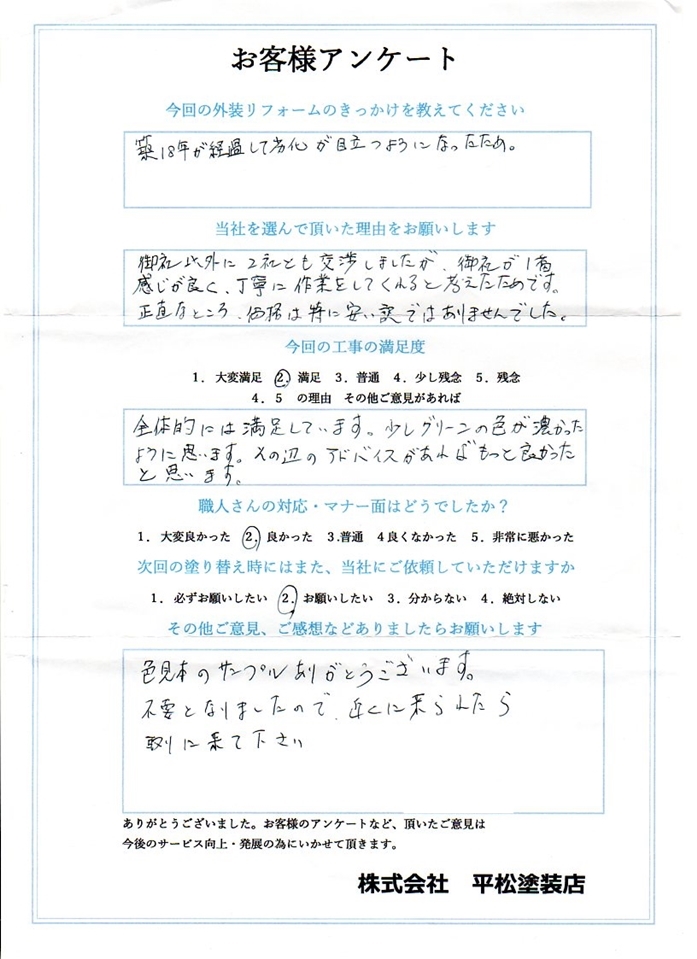 お客様アンケート
今回の外装リフォームのきっかけを教えてください
築18年が経過して劣化が目立つようになったため。
当社を選んで頂いた理由をお願いします
御社以外に2社とも交渉しましたが、御社が1番
感じが良く、丁寧に作業をしてくれると考えたためです。
正直なところ、価格は特に安い訳ではありませんでした。
今回の工事の満足度
1. 大変満足 2. 満足 3. 普通 4. 少し残念 5. 残念
4.5 の理由 その他ご意見があれば
全体的には満足しています。少しグリーンの色が濃かった
ように思います。その辺のアドバイスがあればもっと良かった
と思います。
職人さんの対応・マナー面はどうでしたか？
1. 大変良かった 2. 良かった 3.普通 4良くなかった 5. 非常に悪かった
次回の塗り替え時にはまた、当社にご依頼していただけますか
1. 必ずお願いしたい 2. お願いしたい 3. 分からない 4. 絶対しない
その他ご意見、ご感想などありましたらお願いします
色見本のサンプルありがとうございます。
不要となりましたので、近くに来られたら
取りに来て下さい
ありがとうございました。お客様のアンケートなど、頂いたご意見は
今後のサービス向上・発展の為にいかせて頂きます。
株式会社 平松塗装店